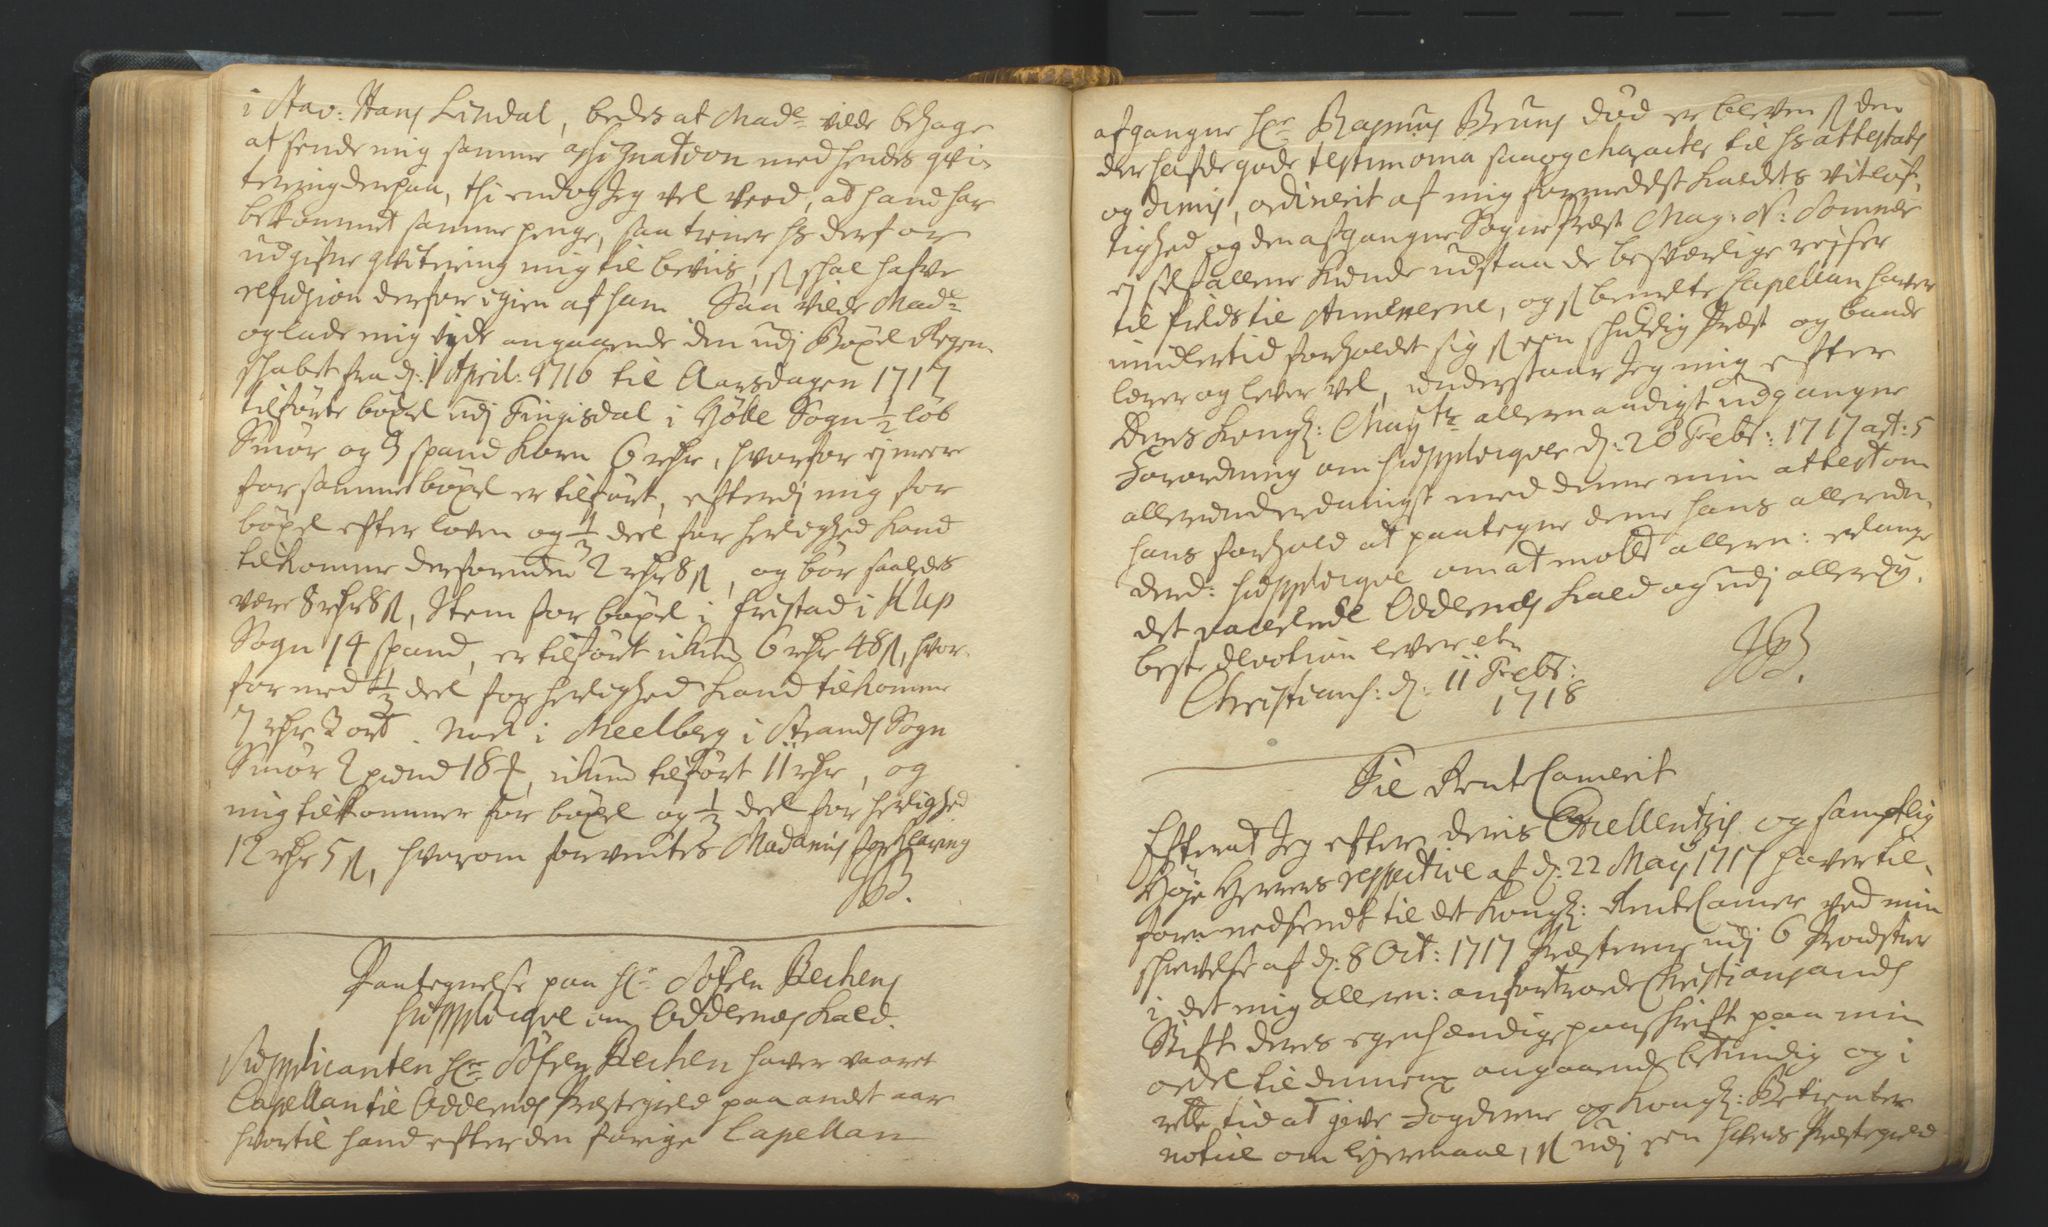 i Stav: Hans Lindal, bedes at Mad: vilde behage
at sende mig samme assignation med hendes qvi-
tering derpaa, thi endog Jeg vel veed, at hand har
bekommet samme penge, saa tiener hs derfor
udgifne qvitering mig til beviis, sl schal hafve
refusion derfor igien af ham Saa vilde Mad:
og lade mig vide angaaende den udj Böxel Regen-
schabet fra d: 1 April: 1716 til Aarsdagen 1717
tilförte böxel udj Tingisdal i Hölle Sogn 1/2 löb
Smör og 3 spand Korn 6 rdr, hvorfor ej meere
for samme böxel er tilfört, efterdj mig for
böxel efter loven og 1/3 deel for herlighed kand
tilkomme derforuden 2 rdr 8 s, og bör saaledes
være 8 rdr 8 s, Item for böxel i Fristad i Klep
Sogn 14 spand, er tilfört ikun 6 rdr 48 s, hvor-
for med 1/3 deel for herlighed kand tilkomme
7 rdr 3 ort. Nok i Meelberg i Strands Sogn
Smör 2 pund 18 , ikun tilfört 11 rdr, og
mig tilkommer for böxel og 1/3 deel for herlighed
12 rdr 5 s, hvorom forventes Madamis forklaring
JB.
Paategnelse paa Hr Söfren Bechens
supplicqve om Oddernes kald.
Supplicanten Hr Söfren Bechen haver været
Capellan til Oddernes Præstegield paa andet aar
hvortil hand efter den forige Capellan
afgangne Hr Rasmus Bruns död er bleven sl den
der hafde gode testimonia saa og Character til hs attestats
og dimis, ordinerit af mig formedelst Kaldets vitlöf-
tighed og den afgangne Sogne Præst Mag: N: Sommer
ej self allene kunde udstaa de besværlige rejser
til fields til Annexerne, og sl bemelte Capellan haver
imidlertid forholdet sig sl een schichelig Præst og baade
lærer og lever vel, understaar Jeg mig efter
Deres Kongl: Maytz allernaadigst udgangne
Forordning om supplicqver d: 20 Febr: 1717 art: 5
allerunderdanigst med denne min attest om
hans forhold at paategne denne hans allerun-
derd: supplicqve om at motte allern: erlange
det vacerende Oddernes kald og udj allerdy:
beste devotion lever etc
Christians: d: 11 Febr:
1718
JB.
Til RenteCamerit
Efterat Jeg efter deris Excellentzis og samptlig
Höje Herrers respective af d: 22 Maij 1717 haver til-
forn nedsendt til det Kongl: RenteCamer ved min
schrivelse af d: 8 Oct: 1717 Præsterne udj 6 Provstier
i det mig allern: anfortroede Christiansands
Stift deres egenhændige paaschrift paa min
ordre til dennem angaaende betimelig og i
rette tid at give Fogderne og Kongl: Betienter
notice om lejermaal, sl udj een huers Præstegield